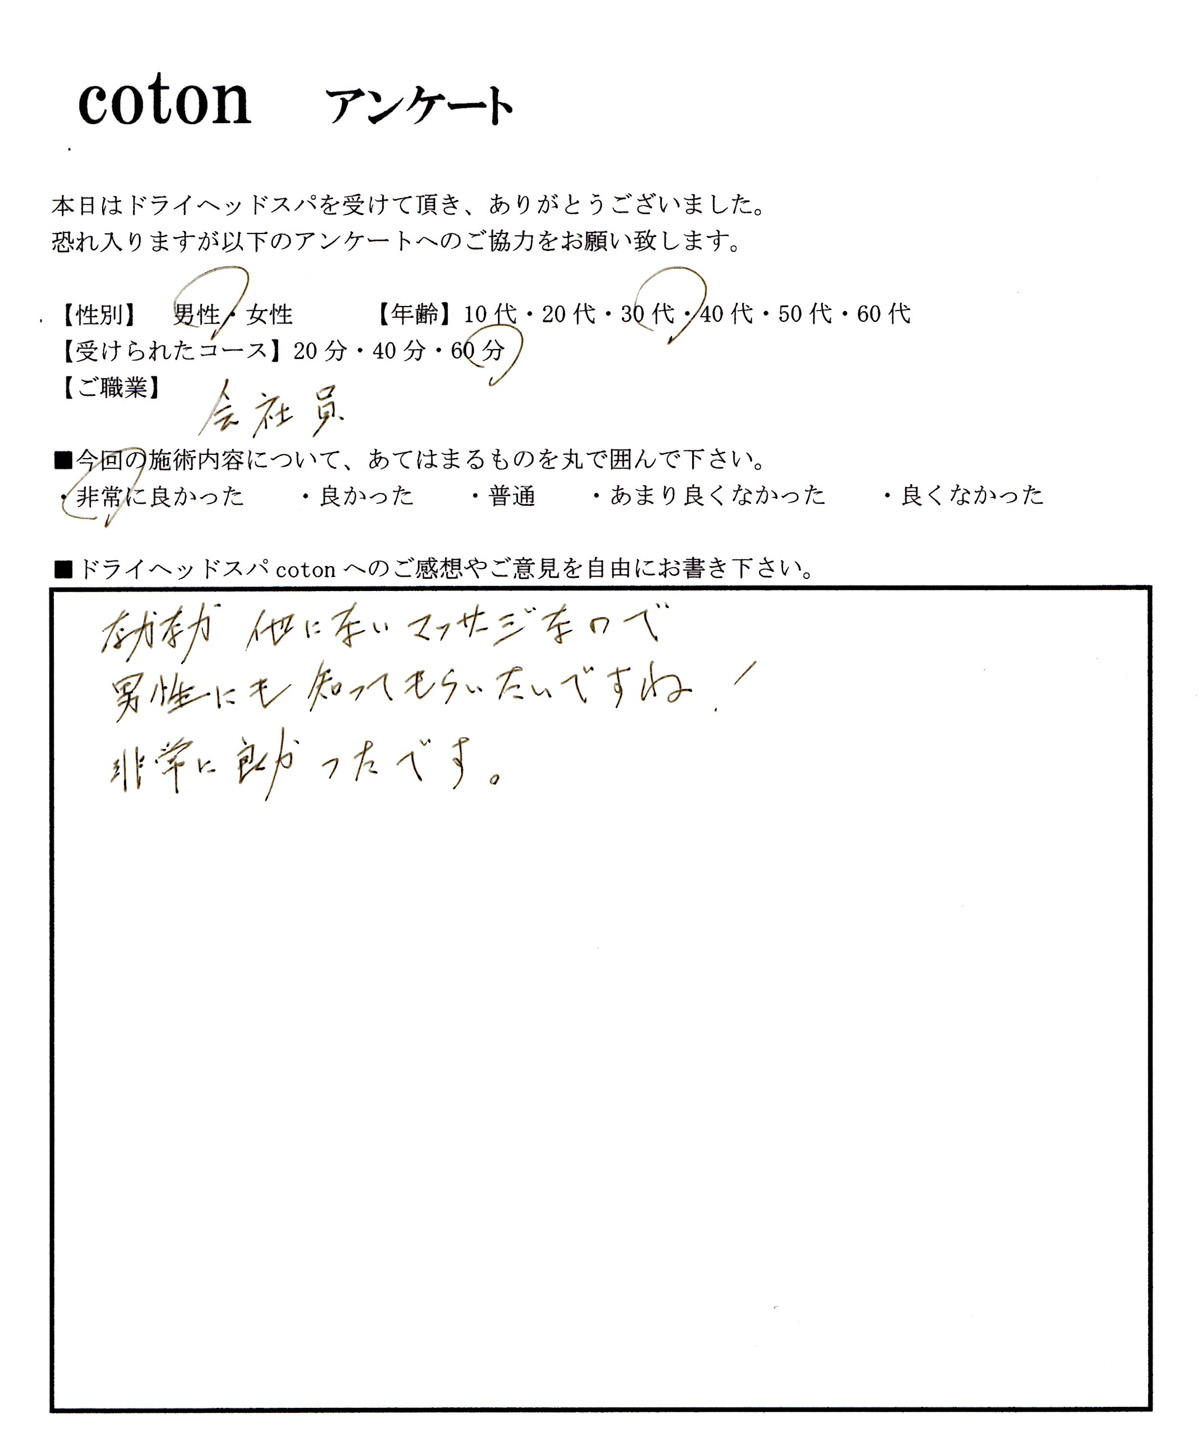 coton アンケート
本日はドライヘッドスパを受けて頂き、ありがとうございました。
恐れ入りますが以下のアンケートへのご協力をお願い致します。
【性別】 男性・女性 【年齢】10代・20代・30代・40代・50代・60代
【受けられたコース】20分・40分・60分
【ご職業】
会社員
■今回の施術内容について、あてはまるものを丸で囲んで下さい。
・非常に良かった ・良かった ・普通 ・あまり良くなかった ・良くなかった
■ドライヘッドスパcotonへのご感想やご意見を自由にお書き下さい。
なかなか 他にないマッサージなので
男性にも知ってもらいたいですね！
非常に良かったです。